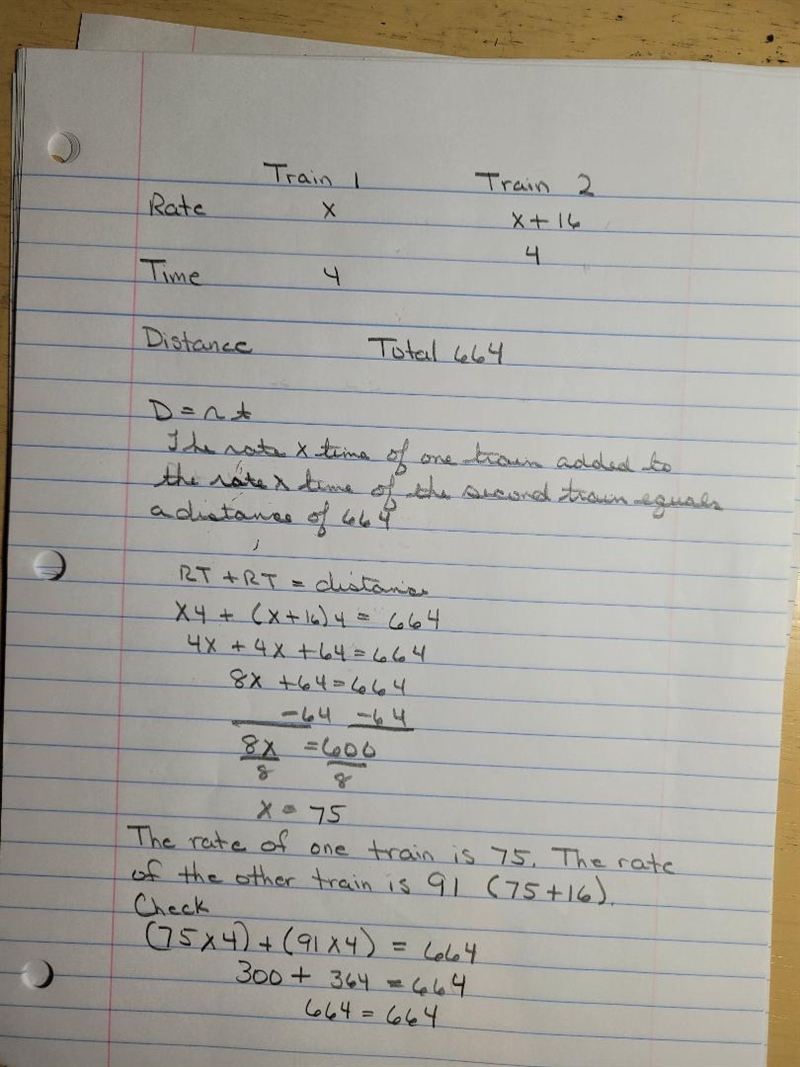 Train 1 Train 2
Rate x x + 16
4
Time 4
Distance Total 664
D = rt
The rate x time of one train added to
the rate x time of the second train equals
a distance of 664
RT + RT = distance
X4 + (x+16)4 = 664
4x + 4x + 64 = 664
8x + 64 = 664
-64 -64
8x = 600
8 8
x = 75
The rate of one train is 75. The rate
of the other train is 91 (75+16).
Check
(75x4) + (91x4) = 664
300 + 364 = 664
664 = 664